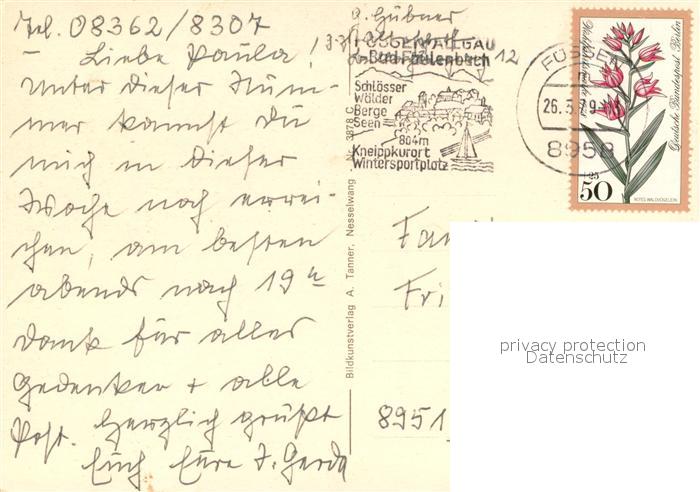 Tel. 08362/8307
Liebe Paula!
Unter dieser Num-
mer kannst Du
mich in dieser
Woche noch errei-
chen, am besten
abends nach 19 h
Dank für alles
Gedenken + alle
Post. Herzlich grüßt
Euch Eure T. Gerda
Hübner
12
FÜSSEN-ALLGÄU
Bad Faulenbach
Schlösser
Wälder
Berge
Seen
804m
Kneippkurort
Wintersportplatz
FÜSSEN
26.3.79
8958
Deutsche Bundespost Berlin
+25
50
ROTES WALDVÖGELEIN
Bildkunstverlag A. Tanner, Nesselwang
8951
privacy protection
Datenschutz